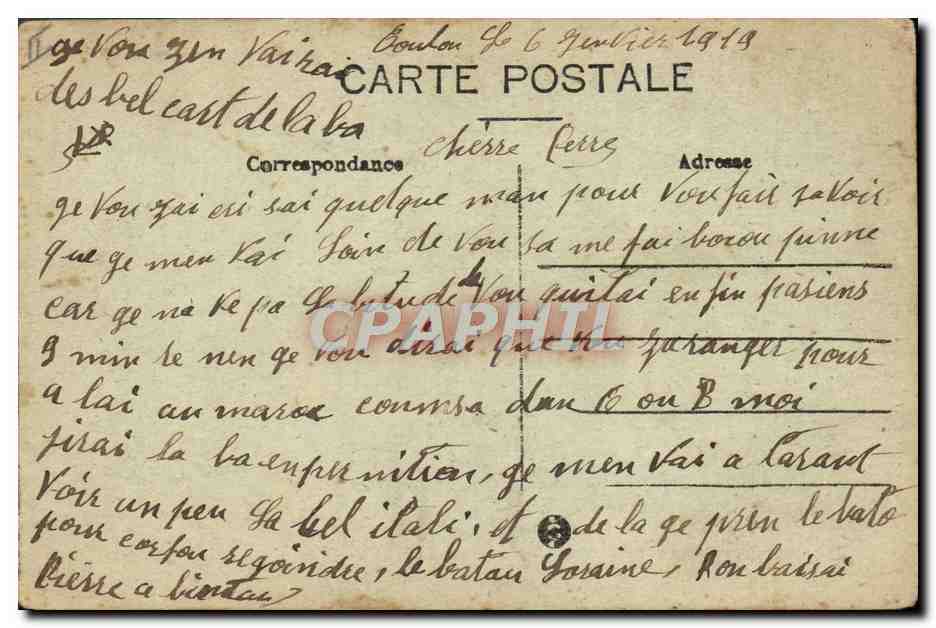 ge vou zen vairai
des bel cart de la ba
Toulon Le 6 genvier 1919
CARTE POSTALE
Correspondance
Adresse
chérre
ge vou zai cri sai quelque mau pour vou fair savoir
que ge men vai Loin de vou sa me fai bocou pinne
car ge na ve pa La bitude de vou quitai enfin pasiens
ge vou dirai que vou zaranger pour
a lai au maroc coumsa dan 6 ou 8 moi
jirai la ba en permition, ge men vai a tarant
voir un peu La bel itali, et de la ge pren le bato
pour corfou regoindre, le batau Loraine, Bon baisai
Pierre a bintau
CPAPHIL